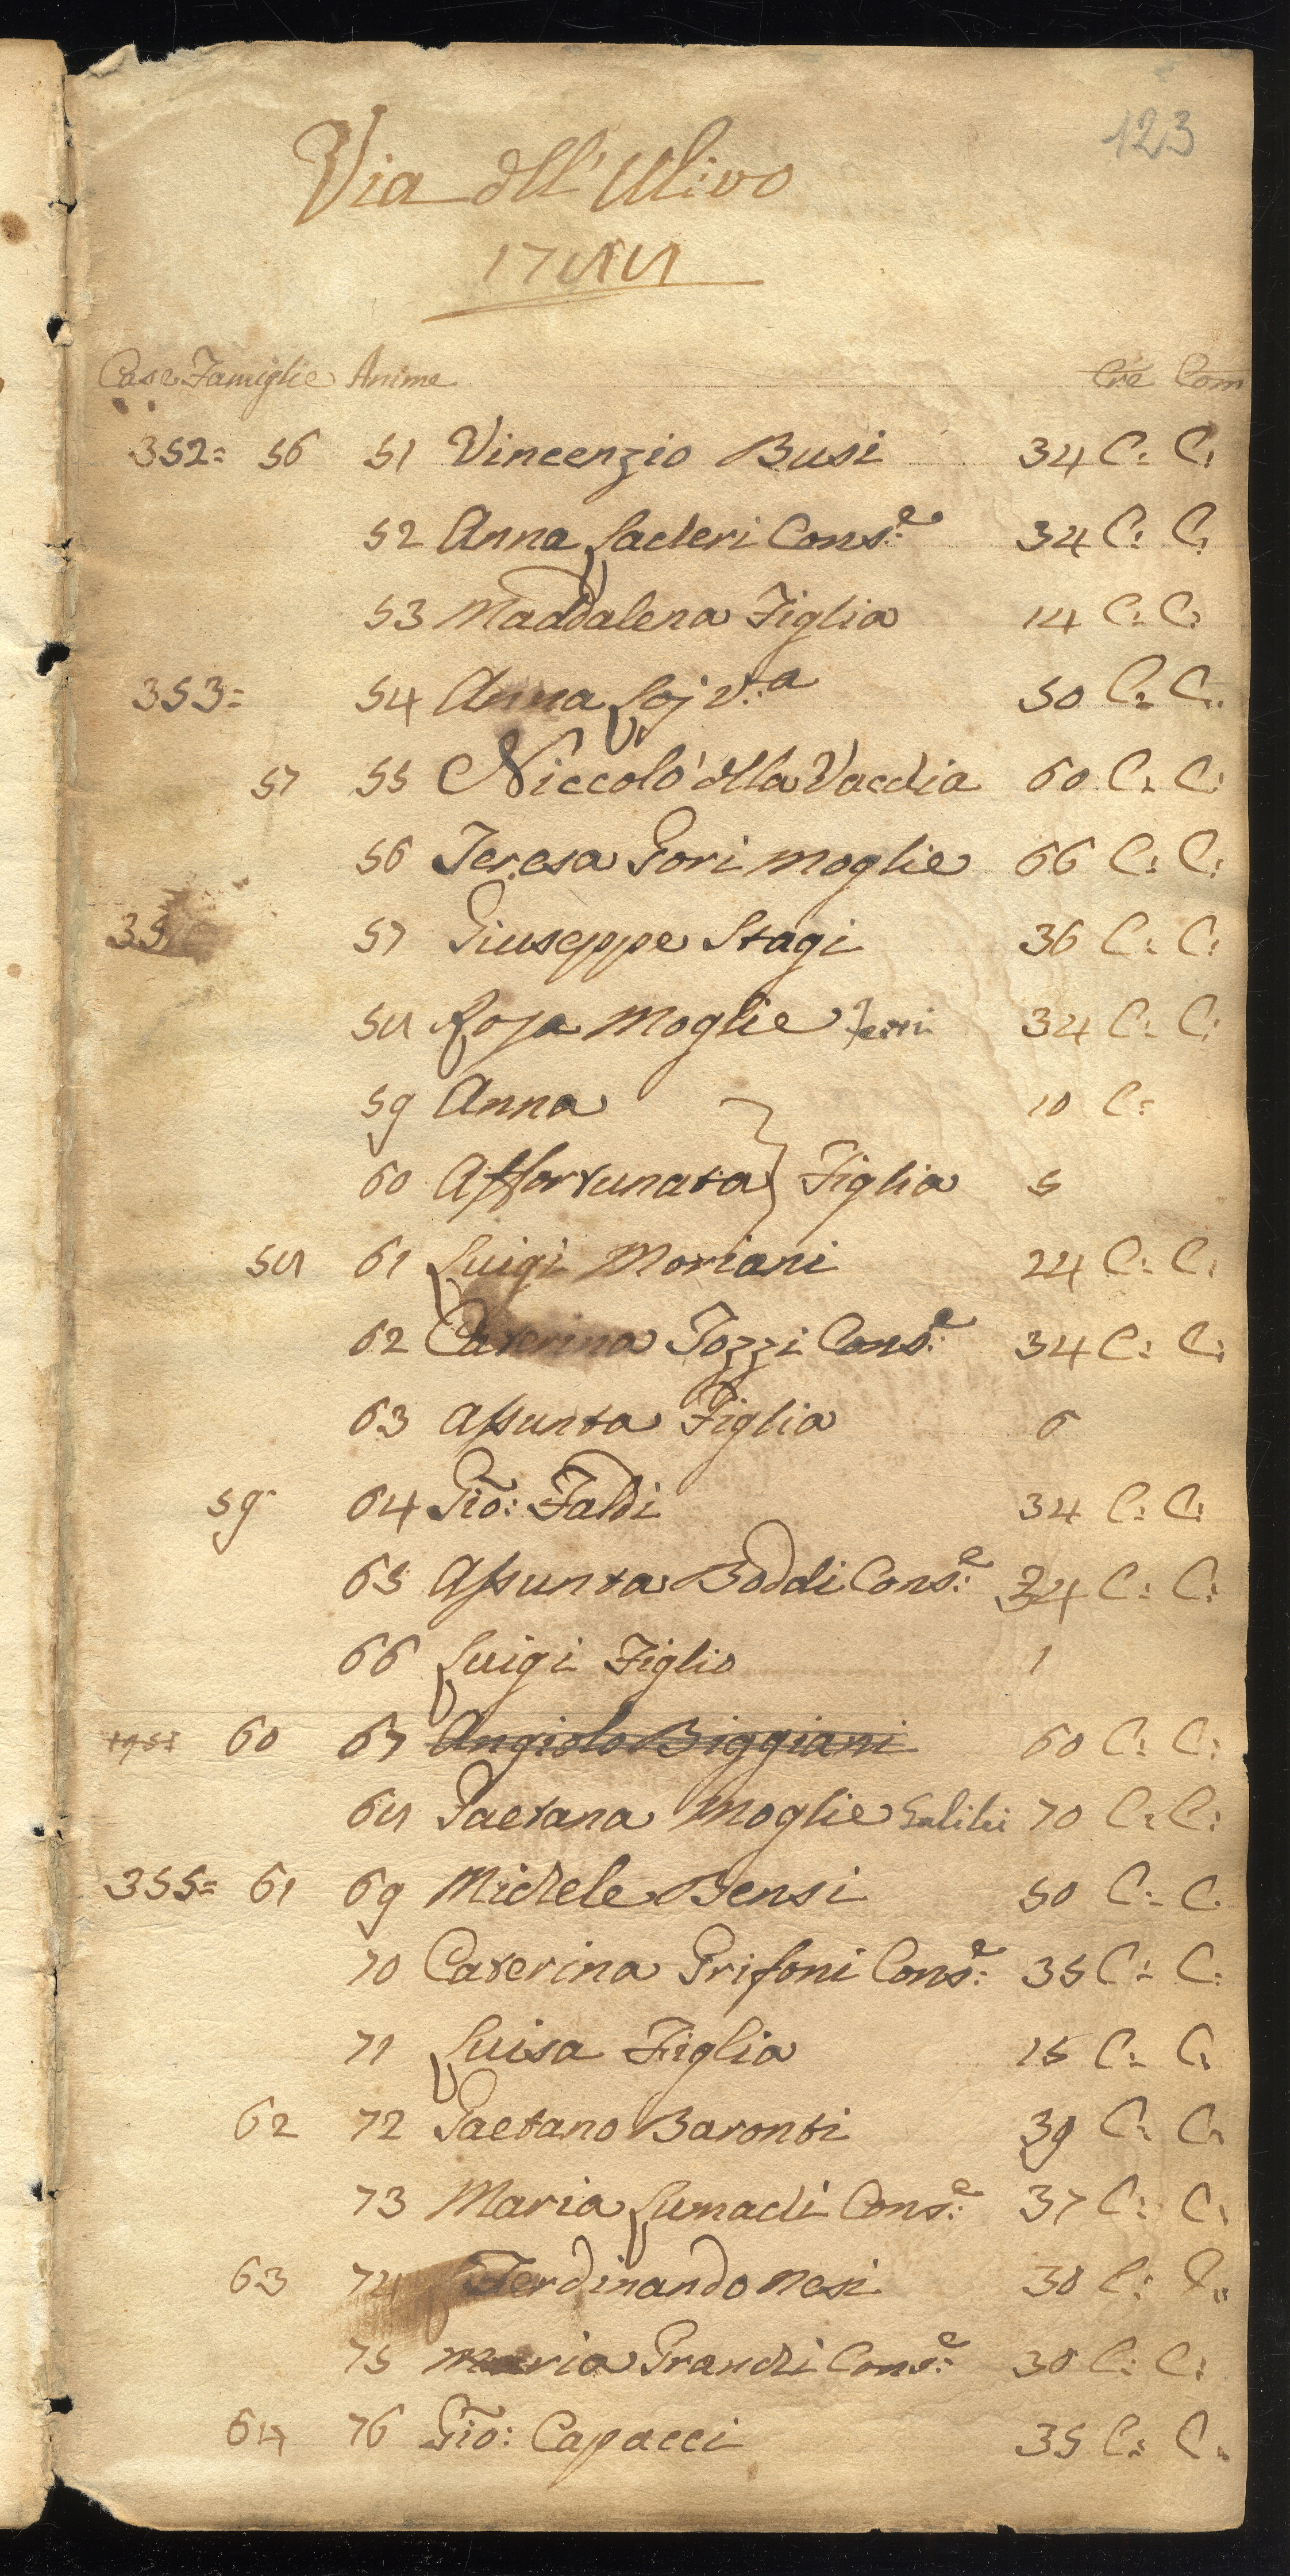 123
Via dell'Ulivo
1788
Case Famiglie Anime Cre Com
352= 56 51 Vincenzio Busi 34 C: C:
52 Anna Lacheri Cons.e 34 C: C:
53 Maddalena Figlia 14 C: C:
353= 54 Anna Loj v.a 50 C: C:
57 55 Niccolo' della Vacchia 60 C: C:
56 Teresa Gori Moglie 66 C: C:
35 57 Giuseppe Stagi 36 C: C:
58 Rosa Moglie Ferri 34 C: C:
59 Anna 10 C:
60 Affortunata } Figlia 5
58 61 Luigi Moriani 24 C: C:
62 Caterina Tozzi Cons.e 34 C: C:
63 Assunta Figlia 6
59 64 Gio: Faldi 34 C: C:
65 Assunta Boddi Cons.e 34 C: C:
66 Luigi Figlio 1
60 67 Angiolo Biggiani 60 C: C:
68 Gaetana Moglie Galilei 70 C: C:
355= 61 69 Michele Bensi 50 C: C.
70 Caterina Grifoni Cons.e 35 C: C:
71 Luisa Figlia 15 C: C:
62 72 Gaetano Baronti 39 C: C:
73 Maria Lumachi Cons.e 37 C: C:
63 74 Ferdinando Nesi 30 C: C:
75 Maria Grandi Cons.e 30 C: C:
64 76 Gio: Capacci 35 C: C: